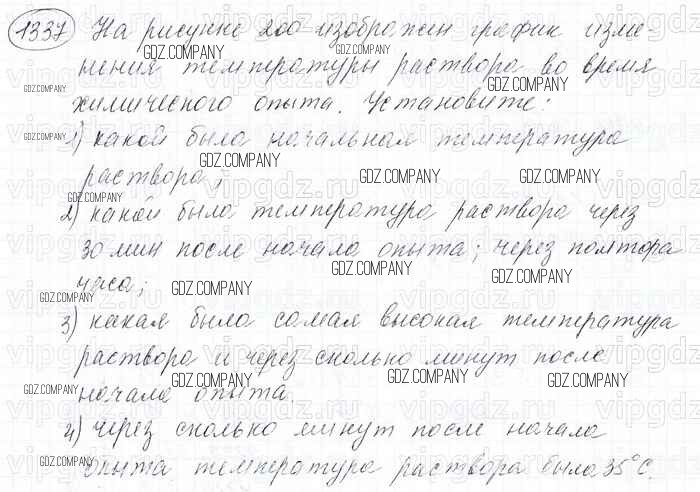 1337 На рисунке 200 изображен график изме-
нения температуры раствора во время
химического опыта. Установите:
1) какой была начальная температура
раствора;
2) какой была температура раствора через
30 мин после начала опыта; через полтора
часа;
3) какая была самая высокая температура
раствора и через сколько минут после
начала опыта.
4) через сколько минут после начала
опыта температура раствора была 35°С.